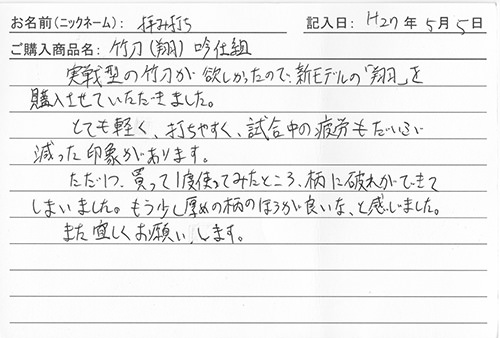 お名前(ニックネーム): 拝み打ち 記入日: H27年5月5日
ご購入商品名: 竹刀(翔) 吟仕組
実戦型の竹刀が欲しかったので、新モデルの「翔」を
購入させていただきました。
とても軽く、打ちやすく、試合中の疲労もだいぶ
減った印象があります。
ただ1つ、買って1度使ってみたところ、柄に破れができて
しまいました。もう少し厚めの柄のほうが良いな、と感じました。
また宜しくお願いします。